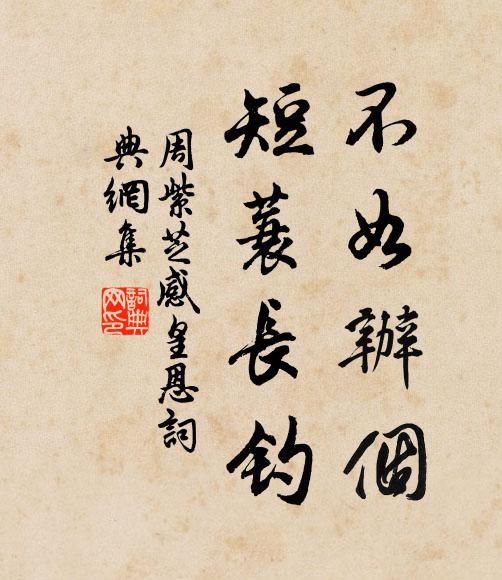 不如辦個
短蓑長釣
周紫芝感皇恩詞
典網集
詞典
网印